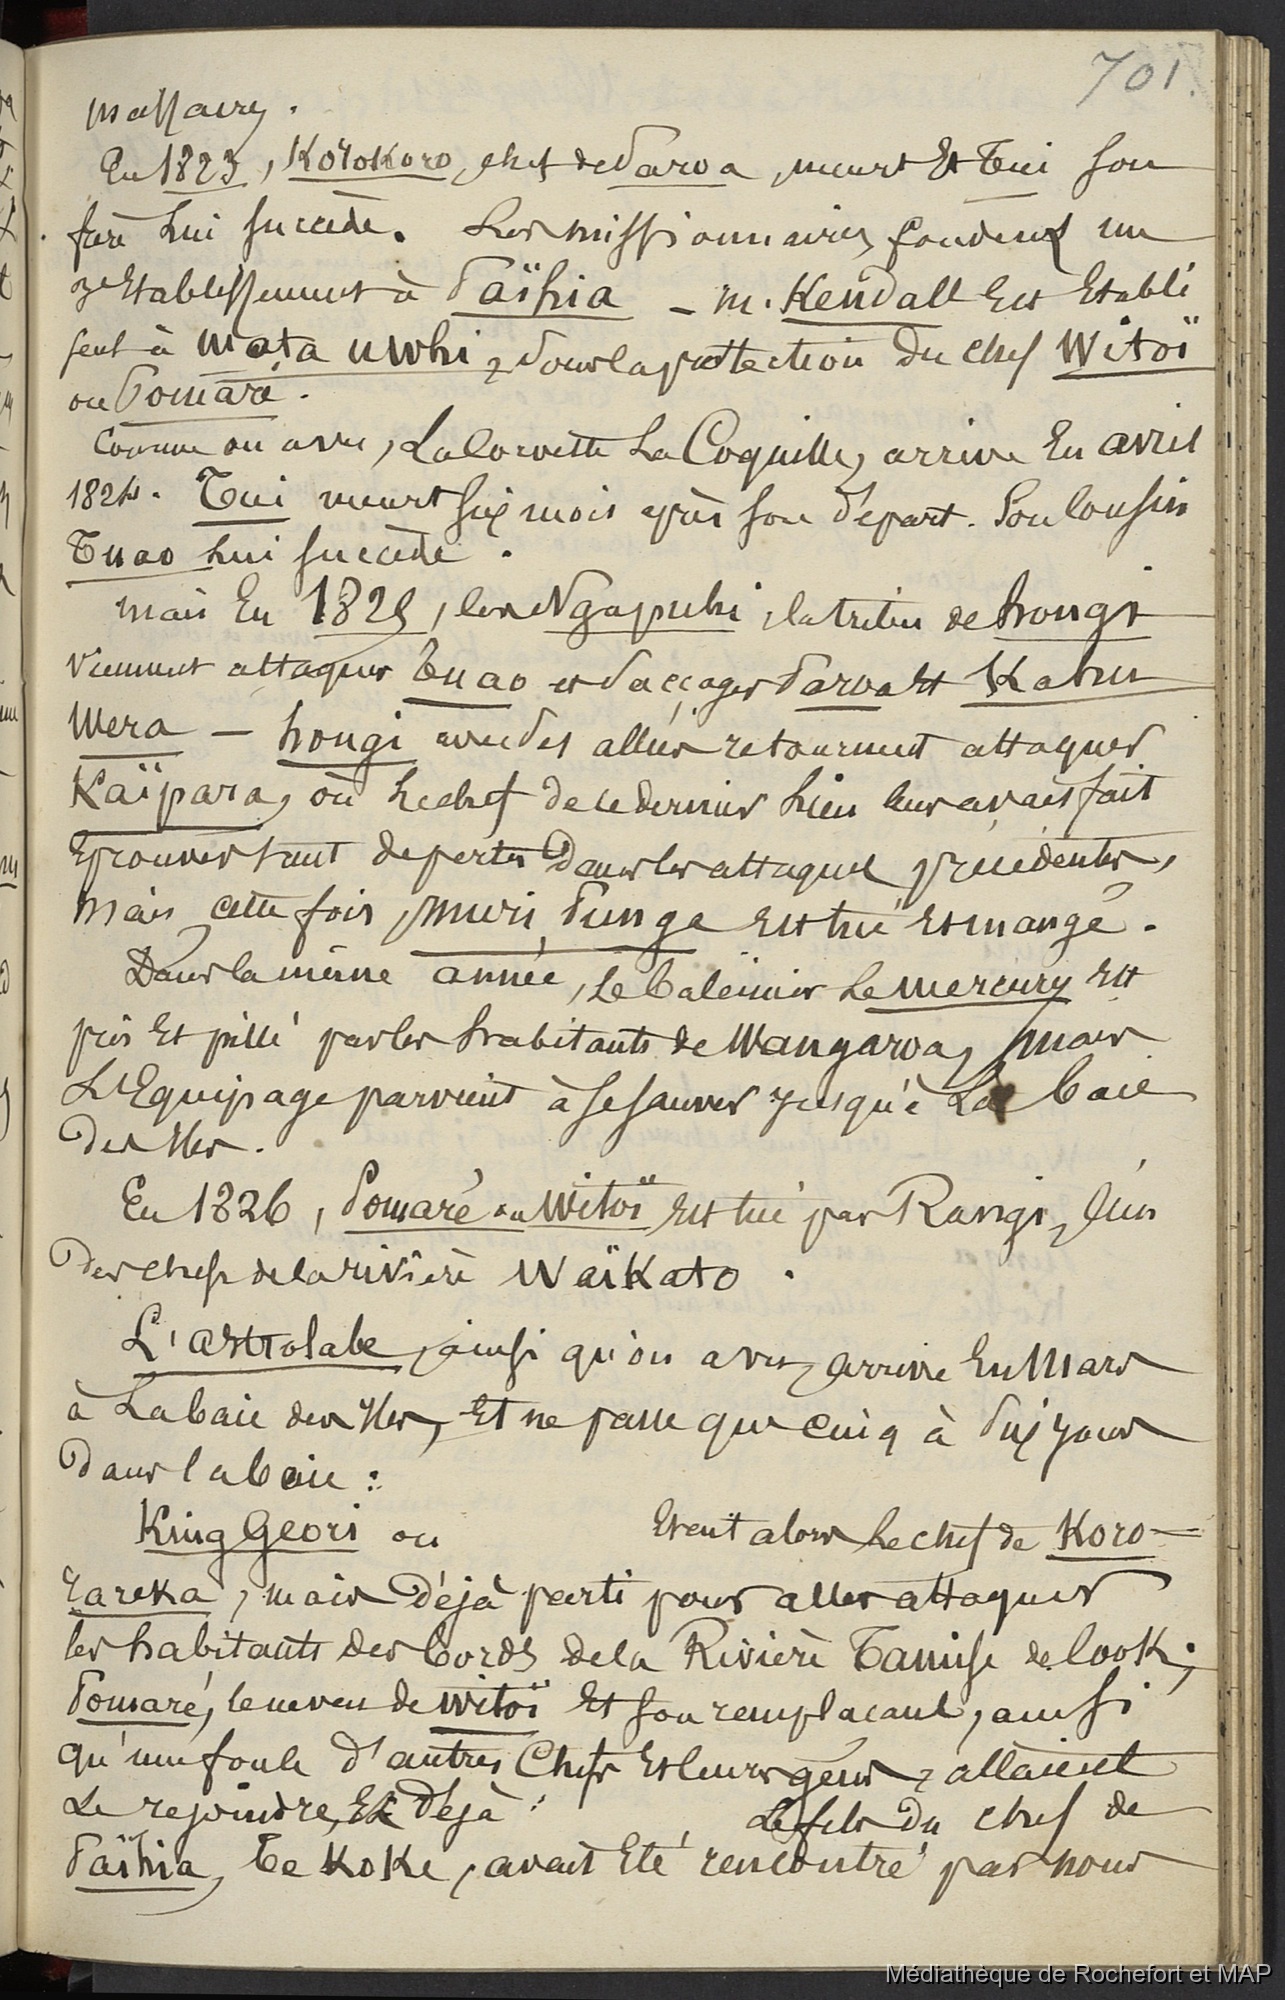 701.
massacrés.
En 1823, Korokoro, chef de Paroa, meurt Et Tui son
frère Lui succède. Les missionnaires fondent un
3e Etablissement à Païhia – M. Kendall Est Etabli
seul à Mata uwhi, sous la protection du chef Witoï
ou Pomaré.
Comme on a vu, La Corvette La Coquille, arrive En avril
1824. Tui meurt six mois après son départ. Son Cousin
Tuao Lui succède.
mais En 1825, les Ngapuhi, la tribu de hongi
viennent attaquer Tuao et saccager Paroa Et Kahu
Wera – hongi avec des alliés retournent attaquer
Kaïpara, où Le chef de ce dernier Lieu leur avait fait
Eprouver tant de pertes Dans les attaques précédentes,
mais cette fois, Muri Punga Est tué Et mangé.
Dans la même année, Le Baleinier Le Mercury Est
pris Et pillé par les habitants de Wangaroa, mais
L'Equipage parvient à se sauver jusqu'à La baie
Des Iles.
En 1826, Pomaré ou Witoï Est tué par Rangi, L'un
Des chefs de la rivière Waïkato.
L'astrolabe, ainsi qu'on a vu, arrive En Mars
à La baie des Iles, Et ne passe que cinq à six jours
Dans la baie:
King Geori ou Etait alors Le chef de Koro-
rareka, mais Déjà parti pour aller attaquer
les habitants des bords de la Rivière Tamise de Cook;
Pomaré, le neveu de Witoï Et son remplaçant, ainsi
qu'une foule d'autres Chefs Et leurs gens, allaient
Le rejoindre, Et Déjà Le fils du chef de
Païhia, Te Koke, avait Eté rencontré par nous
Médiathèque de Rochefort et MAP